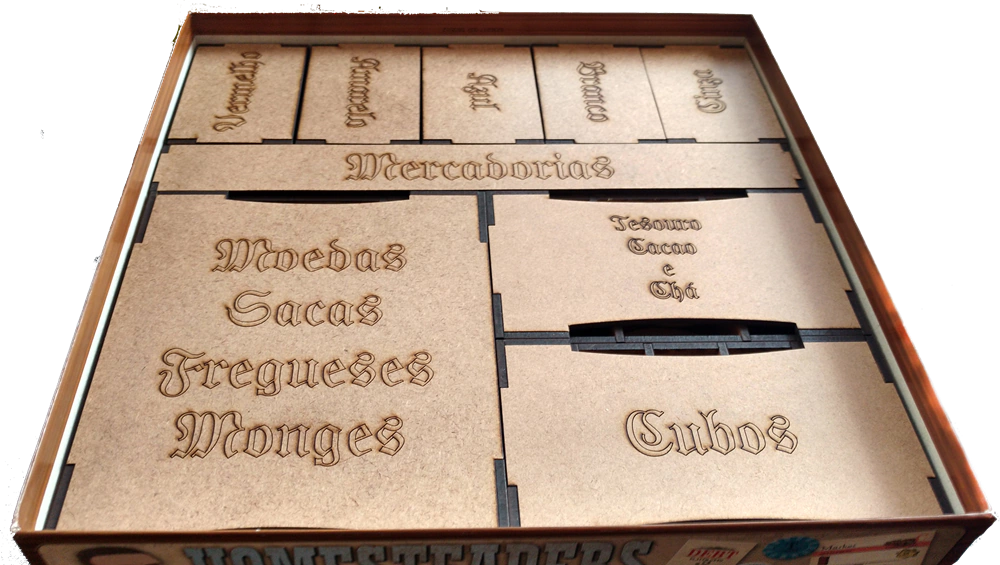 Vermelho
Amarelo
Azul
Branco
Cinza
Mercadorias
Moedas
Sacas
Fregueses
Monges
Tesouro
Cacao
e
Chá
Cubos
HOMESTEADERS
DEBT